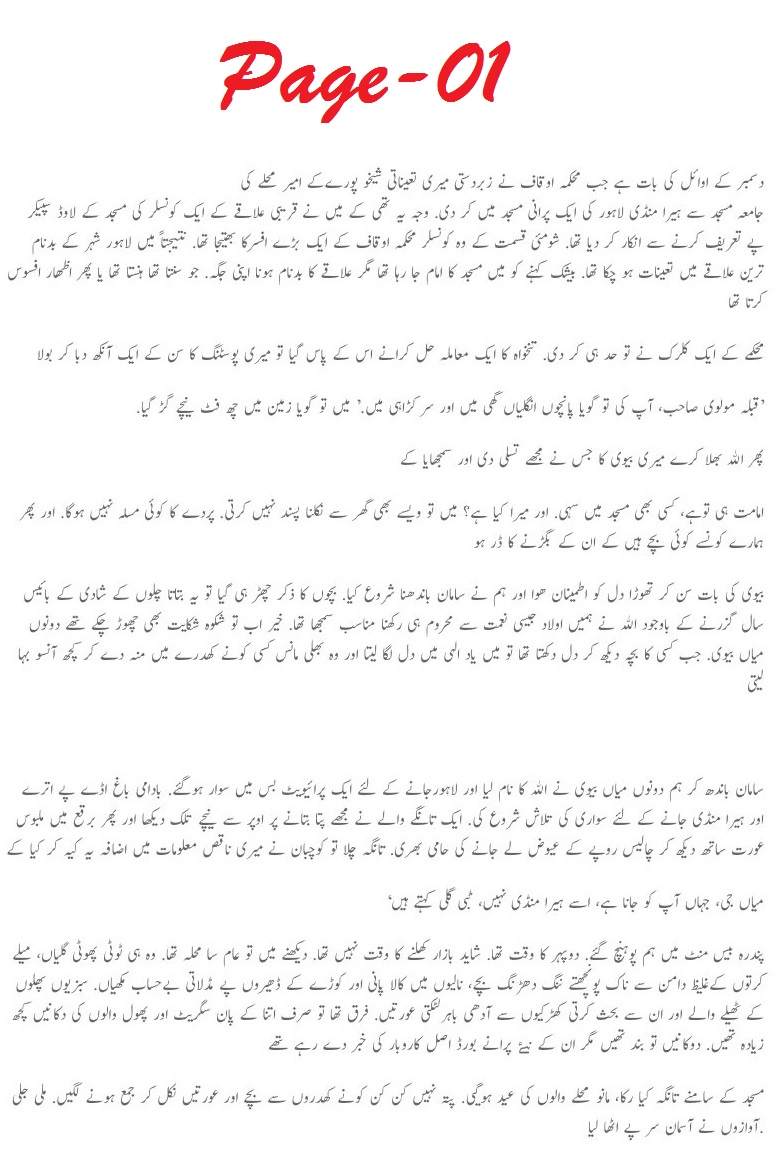 Page-01
دسمبر کے اوائل کی بات ہے جب محکمہ اوقاف نے زبردستی میری تعیناتی شیخو پورےکے امیر محلے کی
جامعہ مسجد سے ہیرا منڈی لاہور کی ایک پرانی مسجد میں کر دی. وجہ یہ تھی کے میں نے قریبی علاقے کے ایک کونسلر کی مسجد کے لاوڈ سپیکر
پے تعریف کرنے سے انکار کر دیا تھا. شومئی قسمت کے وہ کونسلر محکمہ اوقاف کے ایک بڑے افسرکا بھتیجا تھا. نتیجتاً میں لاہور شہر کے بدنام
ترین علاقے میں تعینات ہو چکا تھا. بیشک کہنے کو میں مسجد کا امام جا رہا تھا مگر علاقے کا بدنام ہونا اپنی جگہ. جو سنتا تھا ہنستا تھا یا پھر اظھار افسوس
کرتا تھا
محکمے کے ایک کلرک نے تو حد ہی کر دی. تنخواہ کا ایک معاملہ حل کرانے اس کے پاس گیا تو میری پوسٹنگ کا سن کے ایک آنکھ دبا کر بولا
'قبلہ مولوی صاحب، آپ کی تو گویا پانچوں انگلیاں گھی میں اور سر کڑاہی میں.' میں تو گویا زمین میں چھ فٹ نیچے گڑ گیا.
پھر اللہ بھلا کرے میری بیوی کا جس نے مجھے تسلی دی اور سمجھایا کے
امامت ہی توہے، کسی بھی مسجد میں سہی. اور میرا کیا ہے؟ میں تو ویسے بھی گھر سے نکلنا پسند نہیں کرتی. پردے کا کوئی مسلہ نہیں ہوگا. اور پھر
ہمارے کونسے کوئی بچے ہیں کے ان کے بگڑنے کا ڈر ہو
بیوی کی بات سن کر تھوڑا دل کو اطمینان ھوا اور ہم نے سامان باندھنا شروع کیا. بچوں کا ذکر چھڑ ہی گیا تو یہ بتاتا چلوں کے شادی کے بائیس
سال گزرنے کے باوجود اللہ نے ہمیں اولاد جیسی نعمت سے محروم ہی رکھنا مناسب سمجھا تھا. خیر اب تو شکوہ شکایت بھی چھوڑ چکے تھے دونوں
میاں بیوی. جب کسی کا بچہ دیکھ کر دل دکھتا تھا تو میں یاد الہی میں دل لگا لیتا اور وہ بھلی مانس کسی کونے کھدرے میں منہ دے کر کچھ آنسو بہا
لیتی
سامان باندھ کر ہم دونوں میاں بیوی نے اللہ کا نام لیا اور لاہورجانے کے لئے ایک پرائیویٹ بس میں سوار ہوگئے. بادامی باغ اڈے پے اترے
اور ہیرا منڈی جانے کے لئے سواری کی تلاش شروع کی. ایک تانگے والے نے مجھے پتا بتانے پر اوپر سے نیچے تلک دیکھا اور پھر برقع میں ملبوس
عورت ساتھ دیکھ کر چالیس روپے کے عیوض لے جانے کی حامی بھری. تانگہ چلا تو کوچبان نے میری ناقص معلومات میں اضافہ یہ کہہ کر کیا کے
میاں جی، جہاں آپ کو جانا ہے، اسے ہیرا منڈی نہیں، ٹبی گلی کہتے ہیں'
پندرہ بیس منٹ میں ہم پوہنچ گئے. دوپہر کا وقت تھا. شاید بازار کھلنے کا وقت نہیں تھا. دیکھنے میں تو عام سا محلہ تھا. وہ ہی ٹوٹی پھوٹی گلیاں، میلے
کرتوں کےغلیظ دامن سے ناک پونچھتے ننگ دھڑنگ بچے، نالیوں میں کالا پانی اور کوڑے کے ڈھیروں پے مڈلاتی بےحساب مکھیاں. سبزیوں پھلوں
کے ٹھیلے والے اور ان سے بحث کرتی کھڑکیوں سے آدھی باہرلٹکتی عورتیں. فرق تھا تو صرف اتنا کے پان سگریٹ اور پھول والوں کی دکانیں کچھ
زیادہ تھیں. دوکانیں تو بند تھیں مگر ان کے نیۓ پرانے بورڈ اصل کاروبار کی خبر دے رہے تھے
مسجد کے سامنے تانگہ کیا رکا، مانو محلے والوں کی عید ہوگیی. پتہ نہیں کن کن کونے کھدروں سے بچے اور عورتیں نکل کر جمع ہونے لگیں. ملی جلی
.آوازوں نے آسمان سر پے اٹھا لیا